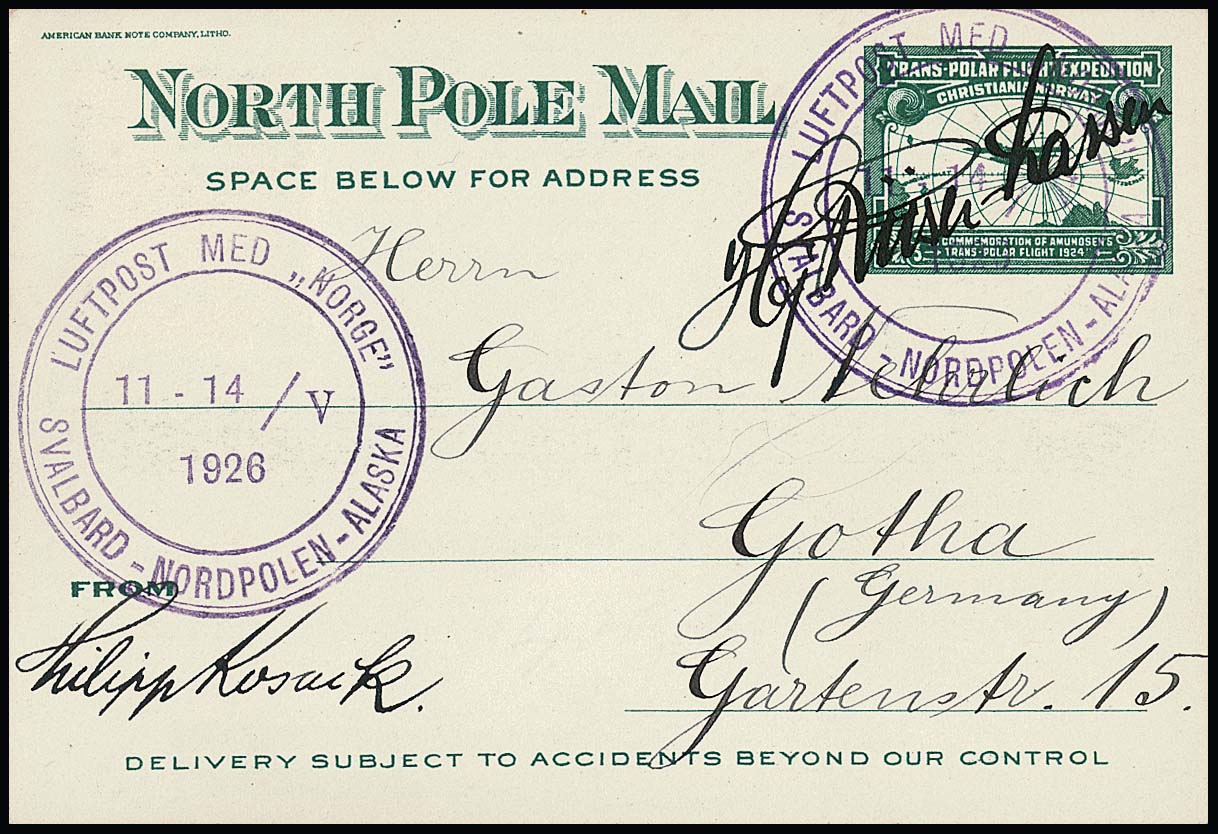 AMERICAN BANK NOTE COMPANY, LITHO.
NORTH POLE MAIL
SPACE BELOW FOR ADDRESS
TRANS-POLAR FLIGHT EXPEDITION
CHRISTIANIA NORWAY
COMMEMORATION OF AMUNDSEN'S
TRANS-POLAR FLIGHT 1924
LUFTPOST MED
SVALBARD - NORDPOLEN - ALASKA
Hj. Riiser Larsen
LUFTPOST MED „NORGE”
11 - 14 / V
1926
SVALBARD - NORDPOLEN - ALASKA
Herrn
Gaston Nehrlich
Gotha
(Germany)
Gartenstr. 15.
FROM
Philipp Kosack.
DELIVERY SUBJECT TO ACCIDENTS BEYOND OUR CONTROL